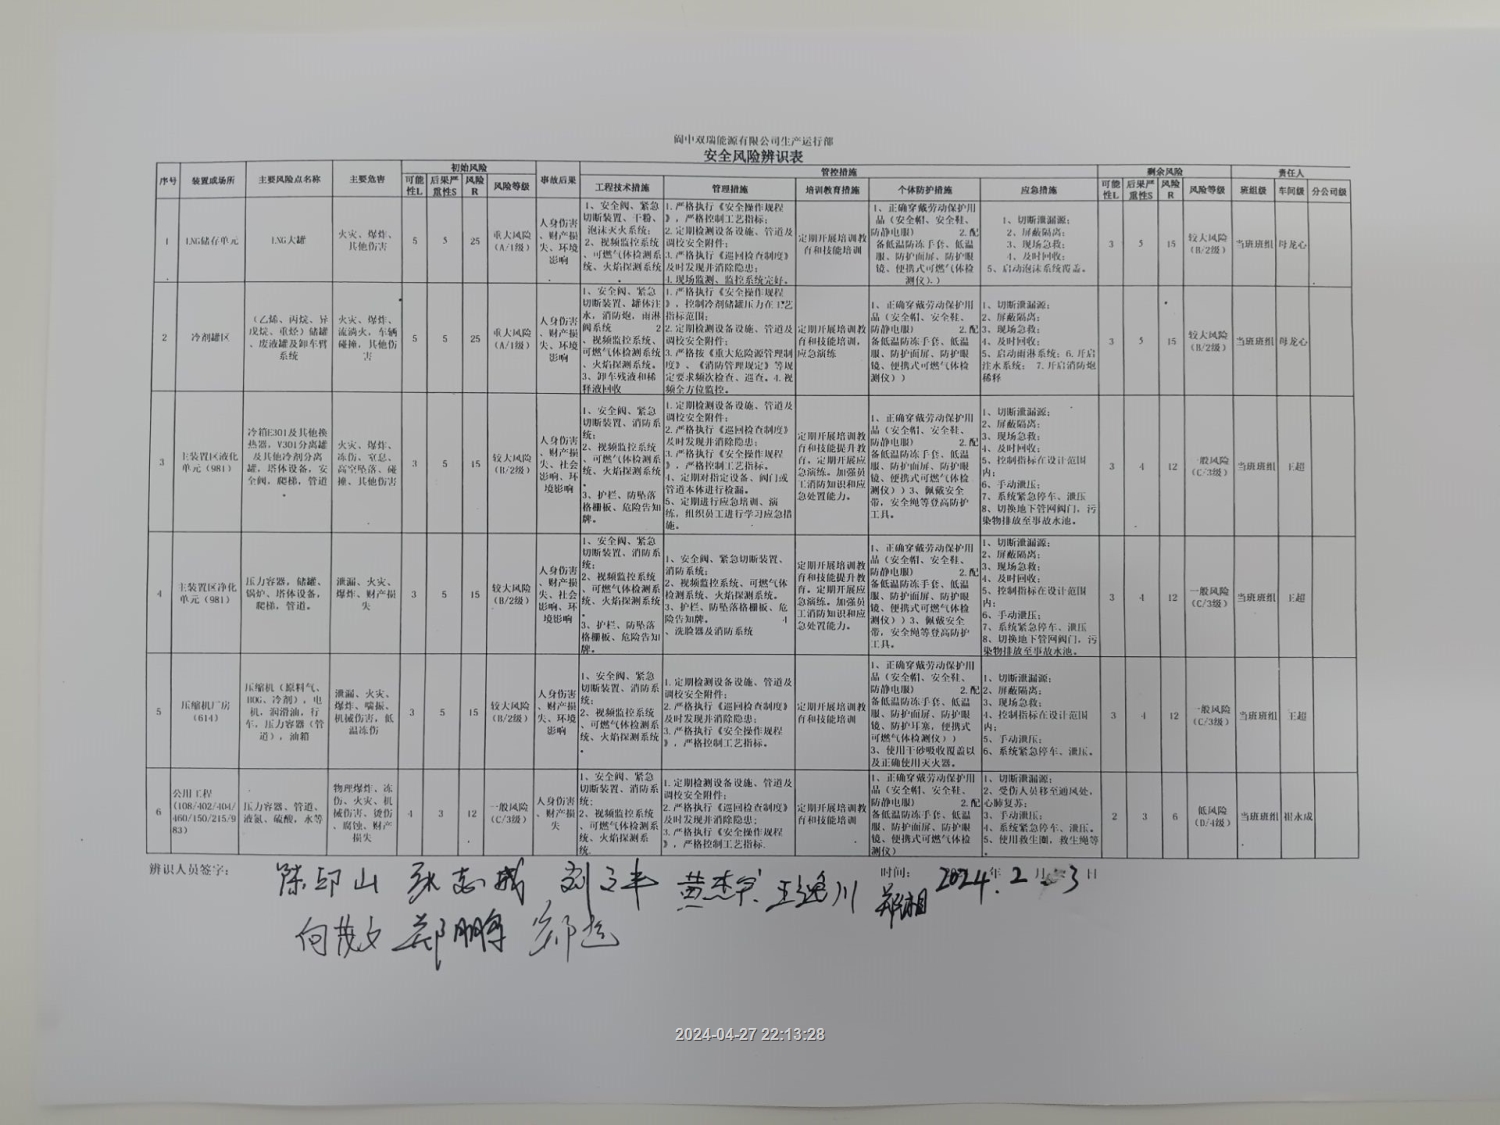 阆中双瑞能源有限公司生产运行部
安全风险辨识表
序号 装置或场所 主要风险点名称 主要危害 初始风险 事故后果 管控措施 剩余风险 责任人
可能性L 后果严重性S 风险R 风险等级 工程技术措施 管理措施 培训教育措施 个体防护措施 应急措施 可能性L 后果严重性S 风险R 风险等级 班组级 车间级 分公司级
1 LNG储存单元 LNG大罐 火灾、爆炸、其他伤害 5 5 25 重大风险(A/1级) 人身伤害、财产损失、环境影响 1、安全阀、紧急切断装置、干粉、泡沫灭火系统; 2、视频监控系统、可燃气体检测系统、火焰探测系统。 1.严格执行《安全操作规程》,严格控制工艺指标; 2.定期检测设备设施、管道及调校安全附件; 3.严格执行《巡回检查制度》及时发现并消除隐患; 4.现场监测、监控系统完好。 定期开展培训教育和技能培训 1、正确穿戴劳动保护用品(安全帽、安全鞋、防静电服) 2.配备低温防冻手套、低温服、防护面屏、防护眼镜、便携式可燃气体检测仪)。) 1、切断泄漏源; 2、屏蔽隔离; 3、现场急救; 4、及时回收; 5、启动泡沫系统覆盖。 3 5 15 较大风险(B/2级) 当班班组 母龙心
2 冷剂罐区 (乙烯、丙烷、异戊烷、重烃)储罐、废液罐及卸车臂系统 火灾、爆炸、流淌火,车辆碰撞,其他伤害 5 5 25 重大风险(A/1级) 人身伤害、财产损失、环境影响 1、安全阀、紧急切断装置、罐体注水,消防炮,雨淋阀系统 2、视频监控系统、可燃气体检测系统、火焰探测系统。 3、卸车残液和稀释液回收 1.严格执行《安全操作规程》,控制冷剂储罐压力在工艺指标范围; 2.定期检测设备设施、管道及调校安全附件; 3.严格按《重大危险源管理制度》、《消防管理规定》等规定要求频次检查、巡查。4.视频全方位监控。 定期开展培训教育和技能培训,应急演练 1、正确穿戴劳动保护用品(安全帽、安全鞋、防静电服) 2.配备低温防冻手套、低温服、防护面屏、防护眼镜、便携式可燃气体检测仪)) 1、切断泄漏源; 2、屏蔽隔离; 3、现场急救; 4、及时回收; 5、启动雨淋系统; 6.开启注水系统; 7.开启消防炮稀释 3 5 15 较大风险(B/2级) 当班班组 母龙心
3 主装置区液化单元(981) 冷箱E301及其他换热器,V301分离罐及其他冷剂分离罐,塔体设备,安全阀,爬梯,管道。 火灾、爆炸、冻伤、窒息、高空坠落、碰撞、其他伤害 3 5 15 较大风险(B/2级) 人身伤害、财产损失、社会影响、环境影响 1、安全阀、紧急切断装置、消防系统; 2、视频监控系统、可燃气体检测系统、火焰探测系统。 3、护栏、防坠落格栅板、危险告知牌。 1.定期检测设备设施、管道及调校安全附件; 2.严格执行《巡回检查制度》及时发现并消除隐患; 3.严格执行《安全操作规程》,严格控制工艺指标。 4、定期对指定设备、阀门或管道本体进行检漏。 5、定期进行应急培训、演练,组织员工进行学习应急措施。 定期开展培训教育和技能提升教育,定期开展应急演练。加强员工消防知识和应急处置能力。 1、正确穿戴劳动保护用品(安全帽、安全鞋、防静电服) 2.配备低温防冻手套、低温服、防护面屏、防护眼镜、便携式可燃气体检测仪))3、佩戴安全带,安全绳等登高防护工具。 1、切断泄漏源; 2、屏蔽隔离; 3、现场急救; 4、及时回收; 5、控制指标在设计范围内; 6、手动泄压; 7、系统紧急停车、泄压 8、切换地下管网阀门,污染物排放至事故水池。 3 4 12 一般风险(C/3级) 当班班组 王超
4 主装置区净化单元(981) 压力容器,储罐、锅炉、塔体设备,爬梯、管道。 泄漏、火灾、爆炸、财产损失 3 5 15 较大风险(B/2级) 人身伤害、财产损失、社会影响、环境影响 1、安全阀、紧急切断装置、消防系统; 2、视频监控系统、可燃气体检测系统、火焰探测系统。 3、护栏、防坠落格栅板、危险告知牌。 1、安全阀、紧急切断装置、消防系统; 2、视频监控系统、可燃气体检测系统、火焰探测系统。 3、护栏、防坠落格栅板、危险告知牌。 4、洗脸器及消防系统 定期开展培训教育和技能提升教育。定期开展应急演练。加强员工消防知识和应急处置能力。 1、正确穿戴劳动保护用品(安全帽、安全鞋、防静电服) 2.配备低温防冻手套、低温服、防护面屏、防护眼镜、便携式可燃气体检测仪))3、佩戴安全带,安全绳等登高防护工具。 1、切断泄漏源; 2、屏蔽隔离; 3、现场急救; 4、及时回收; 5、控制指标在设计范围内; 6、手动泄压; 7、系统紧急停车、泄压 8、切换地下管网阀门,污染物排放至事故水池。 3 4 12 一般风险(C/3级) 当班班组 王超
5 压缩机厂房(614) 压缩机(原料气、BOG、冷剂),电机,润滑油,行车,压力容器(管道),油箱 泄漏、火灾、爆炸、喘振、机械伤害,低温冻伤 3 5 15 较大风险(B/2级) 人身伤害、财产损失、环境影响 1、安全阀、紧急切断装置、消防系统; 2、视频监控系统、可燃气体检测系统、火焰探测系统。 1.定期检测设备设施、管道及调校安全附件; 2.严格执行《巡回检查制度》及时发现并消除隐患; 3.严格执行《安全操作规程》,严格控制工艺指标。 定期开展培训教育和技能培训 1、正确穿戴劳动保护用品(安全帽、安全鞋、防静电服) 2.配备低温防冻手套、低温服、防护面屏、防护眼镜、防护耳塞,便携式可燃气体检测仪)) 3、使用干砂吸收覆盖以及正确使用灭火器。 1、切断泄漏源; 2、屏蔽隔离; 3、现场急救; 4、控制指标在设计范围内; 5、手动泄压; 6、系统紧急停车、泄压。 3 4 12 一般风险(C/3级) 当班班组 王超
6 公用工程(108/402/404/460/150/215/983) 压力容器、管道、液氮、硫酸,水等 物理爆炸、冻伤、火灾、机械伤害、烫伤、腐蚀、财产损失 4 3 12 一般风险(C/3级) 人身伤害、财产损失 1、安全阀、紧急切断装置、消防系统; 2、视频监控系统、可燃气体检测系统、火焰探测系统 1.定期检测设备设施、管道及调校安全附件; 2.严格执行《巡回检查制度》及时发现并消除隐患; 3.严格执行《安全操作规程》,严格控制工艺指标. 定期开展培训教育和技能培训 1、正确穿戴劳动保护用品(安全帽、安全鞋、防静电服) 2.配备低温防冻手套、低温服、防护面屏、防护眼镜、便携式可燃气体检测仪) 1、切断泄漏源; 2、受伤人员移至通风处,心肺复苏; 3、手动泄压; 4、系统紧急停车、泄压。 5、使用救生圈,救生绳等。 2 3 6 低风险(D/4级) 当班班组 崔永成
辨识人员签字: 陈邱山 张志成 王逸川 郑湘 时间: 2024年.2月 3日
何茂文 郑鹏
2024-04-27 22:13:28